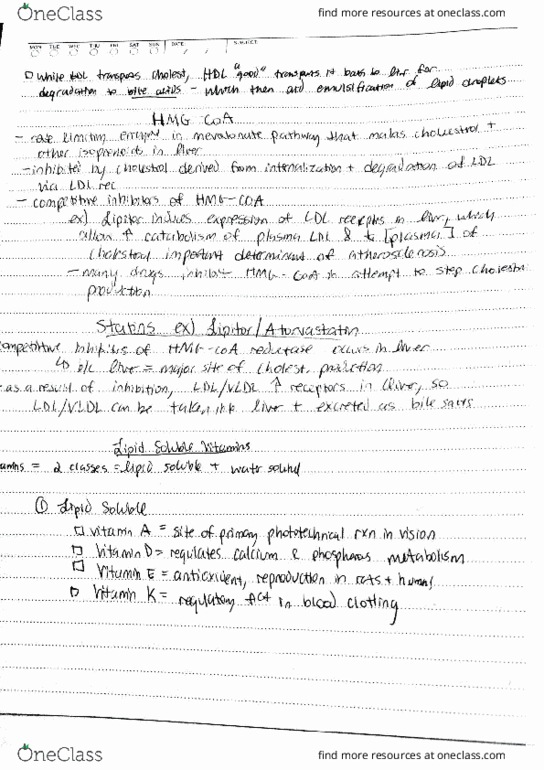 OneClass
find more resources at oneclass.com
MON TUE WED THU FRI SAT SUN DATE SUBJECT
while LDL transports cholest, HDL "good" transports it back to liver for
degradation to bile acids - which then aid emulsification of lipid droplets
HMG CoA
- rate limiting enzyme in mevalonate pathway that makes cholestrol +
other isoprenoids in liver
- inhibited by cholestrol derived from internalization + degradation of LDL
via LDL rec
- competitive inhibitors of HMG-COA
ex) Lipitor induces expression of LDL receptors in liver, which
allow ↑ catabolism of plasma LDL & [plasma] of
cholestrol important determinant of atherosclerosis
- many drugs inhibit HMG-CoA in attempt to stop cholestr
production
Statins ex) Lipitor/Atorvastatin
competitive inhibitors of HMG-COA reductase occurs in liver
↳ b/c liver = major site of cholest. production
as a result of inhibition, LDL/VLDL ↑ receptors in liver, so
LDL/VLDL can be taken into liver + excreted as bile salts
Lipid Soluble Vitamins
amins = 2 classes = lipid soluble + water soluble
① Lipid Soluble
Vitamin A = site of primary phototechnical rxn in vision
Vitamin D = regulates calcium & phospherous metabolism
Vitamin E = antioxident, reproduction in rats + humans
Vitamin K = regulatory fact in blood clotting
OneClass
find more resources at oneclass.com